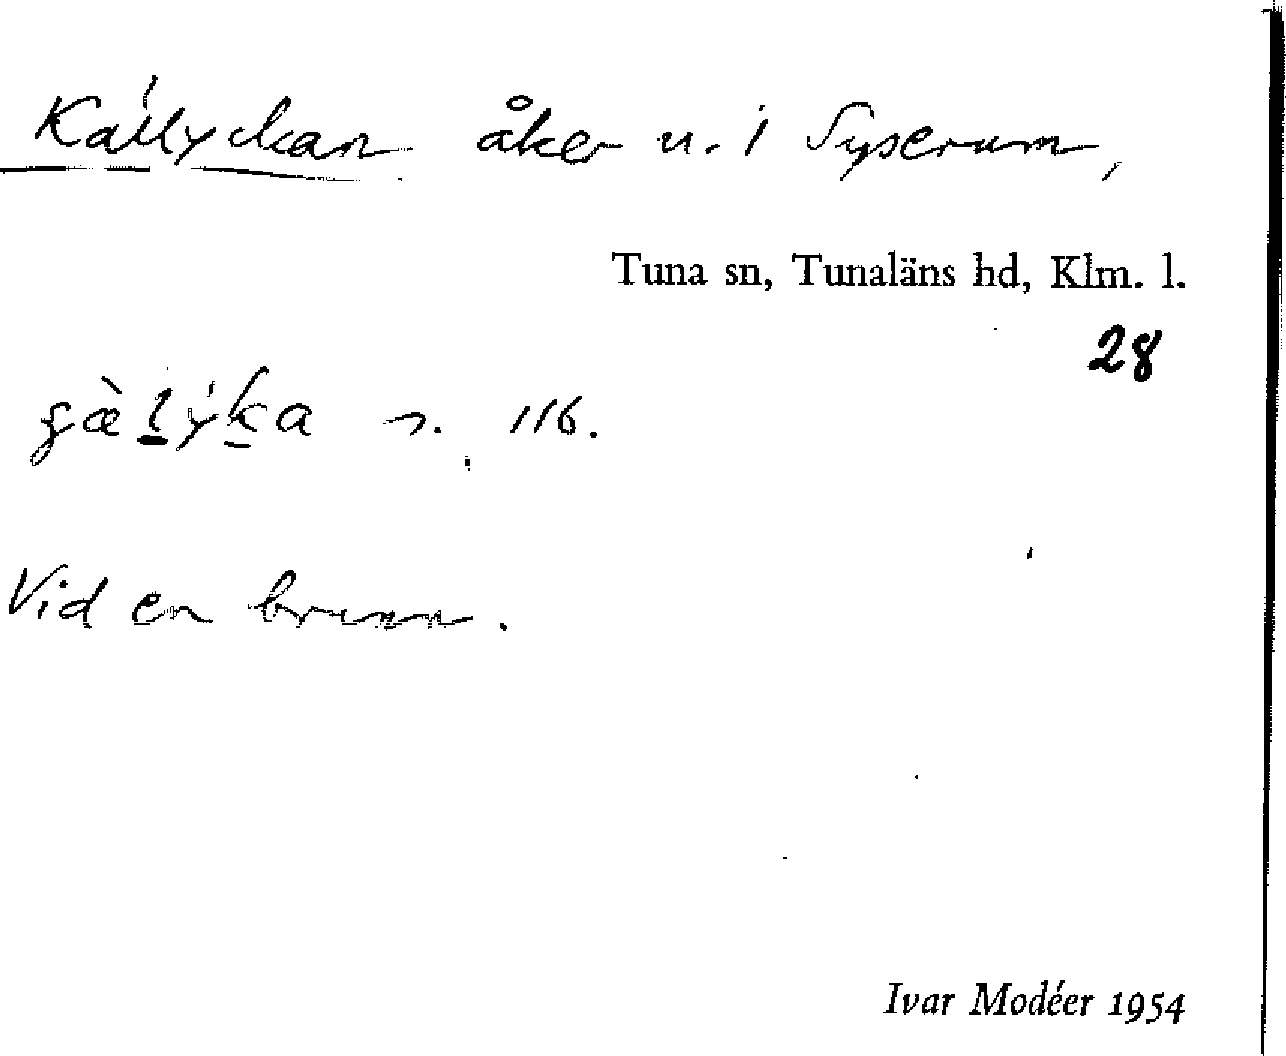 Källyckan åker n. i Syserum,
Tuna sn, Tunaläns hd, Klm. l.
28
116.
Vid en brunn.
Ivar Modéer 1954